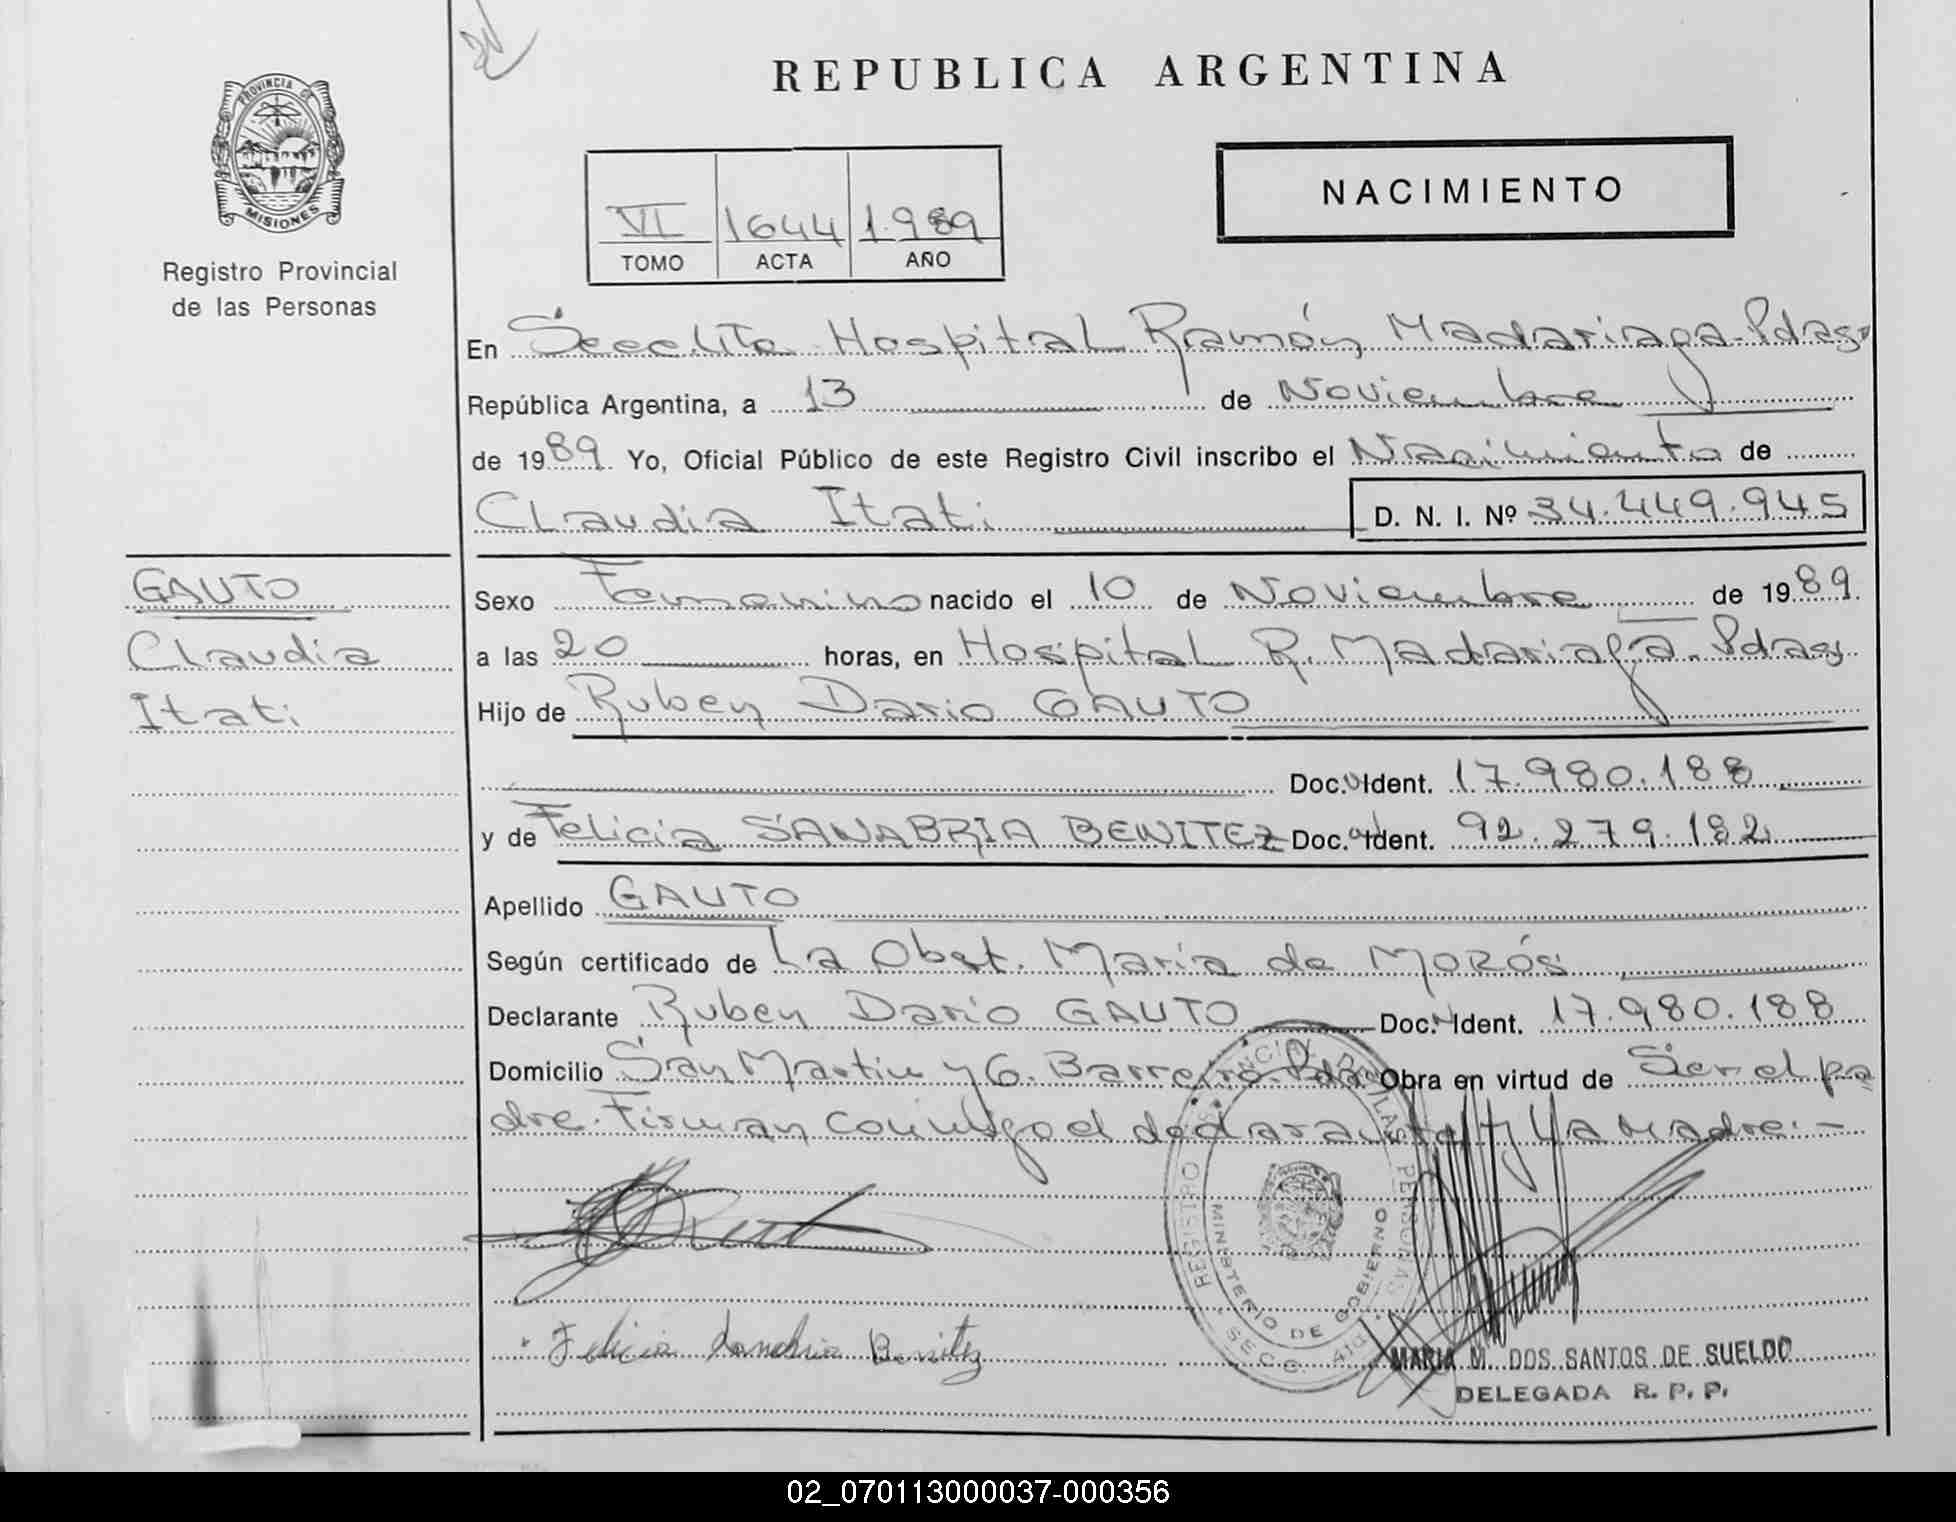 REPUBLICA ARGENTINA
PROVINCIA DE
MISIONES
Registro Provincial
de las Personas
VI 1644 1.989
TOMO ACTA AÑO
NACIMIENTO
En Seccita Hospital Ramón Madariaga-Pdas
República Argentina, a 13 de Noviembre
de 1989. Yo, Oficial Público de este Registro Civil inscribo el Nacimiento de
Claudia Itati D. N. I. Nº 34.449.945
GAUTO
Claudia
Itati
Sexo Femenino nacido el 10 de Noviembre de 1989.
a las 20 horas, en Hospital R. Madariaga. Pdas
Hijo de Ruben Dario GAUTO
Doc. Ident. 17.980.188
y de Felicia SANABRIA BENITEZ Doc. Ident. 92.279.182
Apellido GAUTO
Según certificado de La Obst. Maria de MOROS
Declarante Ruben Dario GAUTO Doc. Ident. 17.980.188
Domicilio San Martin y G. Barreiro. Pdas Obra en virtud de Ser el pa
dre. Firman conmigo el declarante y la madre.-
REGISTRO PROVINCIAL DE LAS PERSONAS
MINISTERIO DE GOBIERNO
SECC.
Felicia Sanabria Benitez
MARIA M. DOS SANTOS DE SUELDO
DELEGADA R. P. P.
02_070113000037-000356